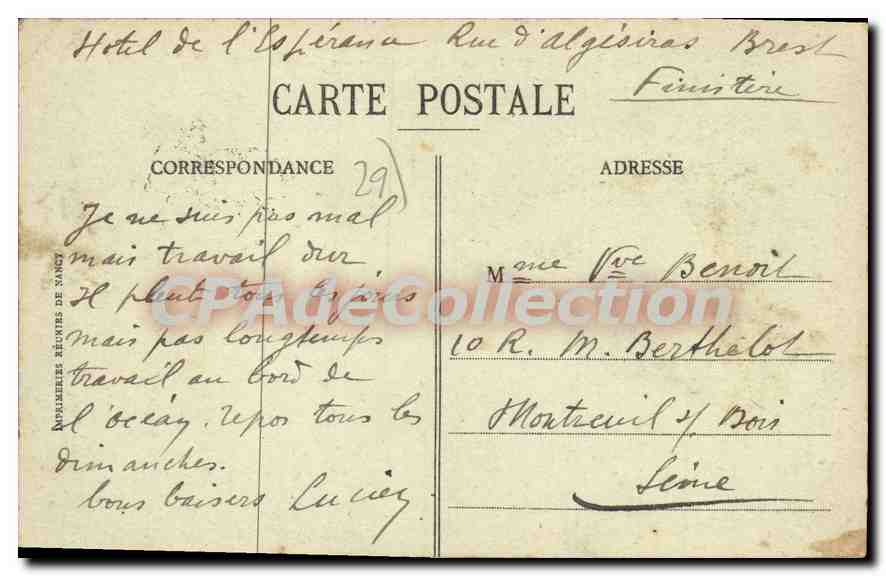 Hotel de l'Espérance Rue d'Algésiras Brest
Finistère
CARTE POSTALE
CORRESPONDANCE
29
ADRESSE
Je ne suis pas mal
mais travail dur
Il pleut tous les jours
mais pas longtemps
travail au bord de
l'océan, repos tous les
dimanches.
bons baisers Lucien
Mme Vve Benoit
10 R. M. Berthelot
Montreuil s/ Bois
Seine
IMPRIMERIES RÉUNIES DE NANCY
CPAdeCollection